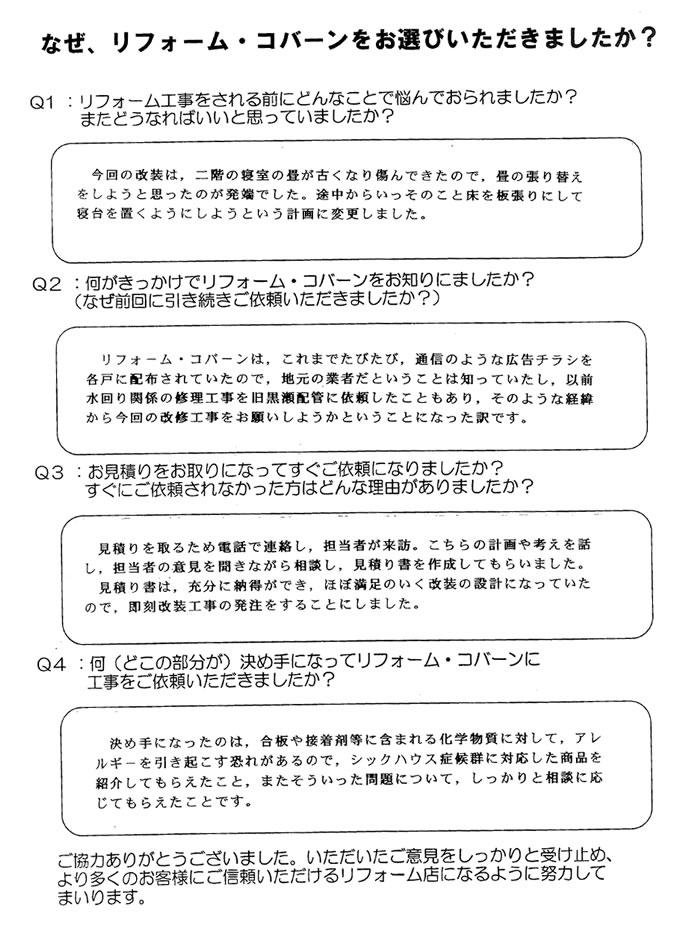 なぜ、リフォーム・コバーンをお選びいただきましたか？
Q1：リフォーム工事をされる前にどんなことで悩んでおられましたか？
またどうなればいいと思っていましたか？
今回の改装は，二階の寝室の畳が古くなり傷んできたので，畳の張り替え
をしようと思ったのが発端でした。途中からいっそのこと床を板張りにして
寝台を置くようにしようという計画に変更しました。
Q2：何がきっかけでリフォーム・コバーンをお知りにましたか？
（なぜ前回に引き続きご依頼いただきましたか？）
リフォーム・コバーンは，これまでたびたび，通信のような広告チラシを
各戸に配布されていたので，地元の業者だということは知っていたし，以前
水回り関係の修理工事を旧黒瀬配管に依頼したこともあり，そのような経緯
から今回の改修工事をお願いしようかということになった訳です。
Q3：お見積りをお取りになってすぐご依頼になりましたか？
すぐにご依頼されなかった方はどんな理由がありましたか？
見積りを取るため電話で連絡し，担当者が来訪。こちらの計画や考えを話
し，担当者の意見を聞きながら相談し，見積り書を作成してもらいました。
見積り書は，充分に納得ができ，ほぼ満足のいく改装の設計になっていた
ので，即刻改装工事の発注をすることにしました。
Q4：何（どこの部分が）決め手になってリフォーム・コバーンに
工事をご依頼いただきましたか？
決め手になったのは，合板や接着剤等に含まれる化学物質に対して，アレ
ルギーを引き起こす恐れがあるので，シックハウス症候群に対応した商品を
紹介してもらえたこと，またそういった問題について，しっかりと相談に応
じてもらえたことです。
ご協力ありがとうございました。いただいたご意見をしっかりと受け止め、
より多くのお客様にご信頼いただけるリフォーム店になるように努力して
まいります。